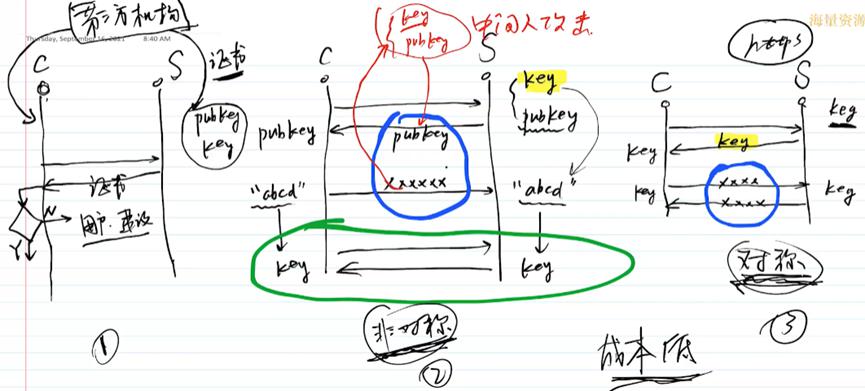 第三方机构
Thursday, September 16, 2021 8:40 AM
C
S
证书
pubkey
key
证书
N
Y
①
key
pubkey
中间人攻击
C
S
key
pubkey
pubkey
pubkey
"abcd"
xxxxxx
"abcd"
key
key
非对称
②
海量资源
https
C
S
key
key
key
key
xxxx
key
xxxx
对称
③
成本低